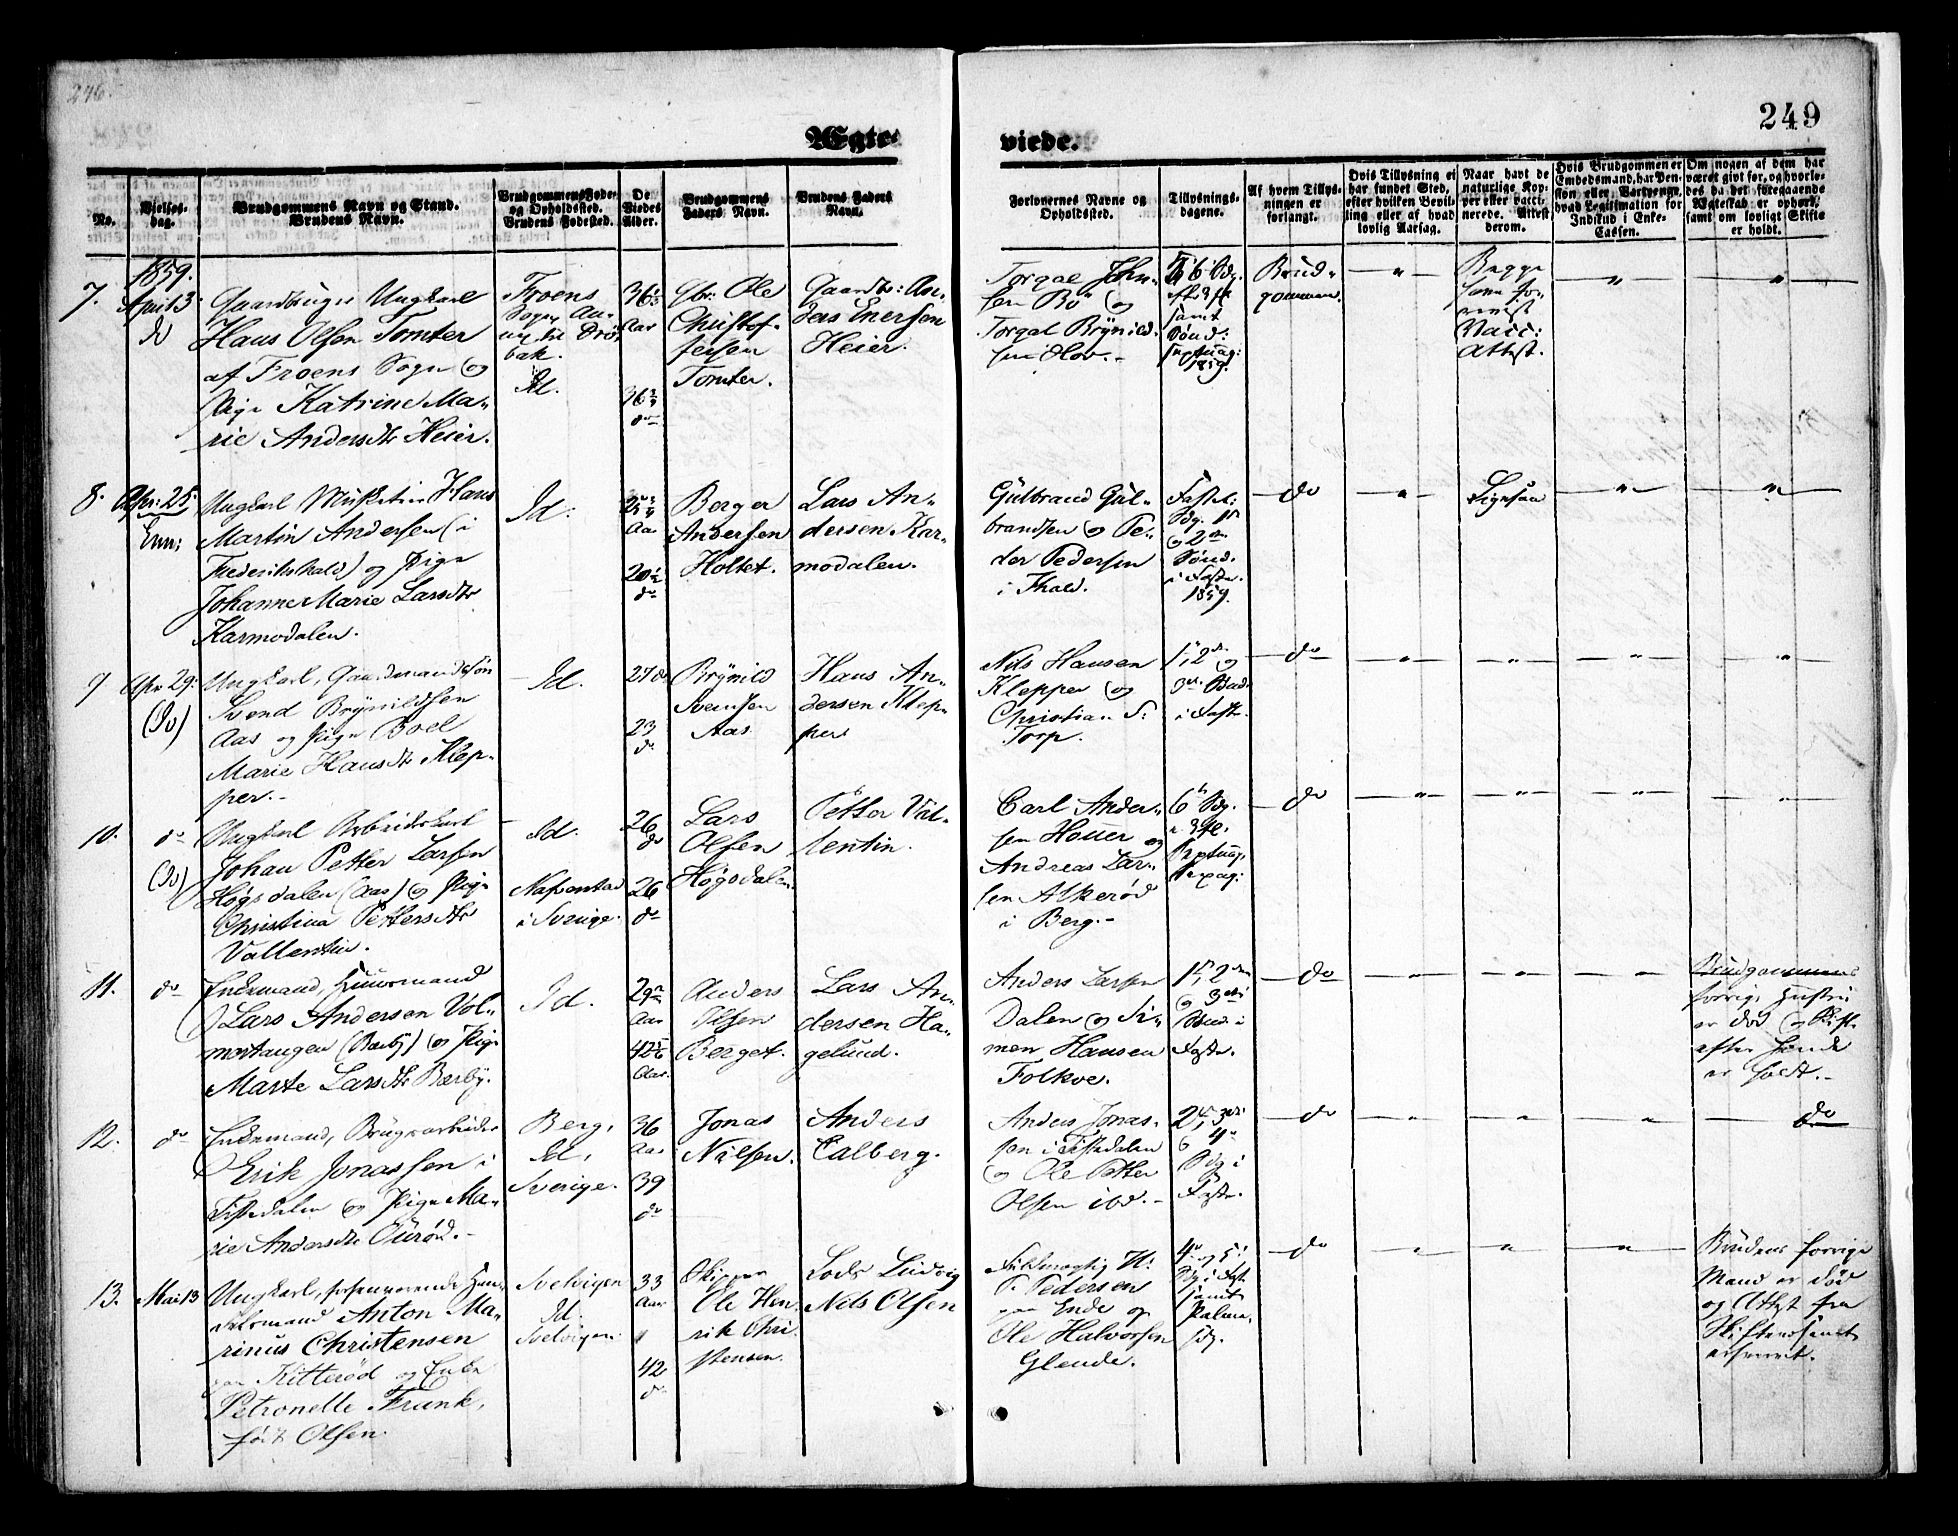 246.
249
Ægte-
viede.
No.
Vielses-
dag.
Brudgommens Navn og Stand.
Brudens Navn.
Brudgommens Føde-
og Opholdssted.
Brudens Fødested.
De
Viedes
Alder.
Brudgommens
Faders Navn.
Brudens Faders
Navn.
Forlovernes Navne og
Opholdssted.
Tillysnings-
dagene.
Af hvem Tillys-
ningen er
forlangt.
Hvis Tillysning ei
har fundet Sted,
efter hvilken Bevil-
ling eller af hvad
lovlig Aarsag.
Naar havt de
naturlige Kop-
per eller vacci-
nerede. Attest
derom.
Hvis Brudgommen er
Embedsmand, har Pen-
sion eller Vartpenge,
hvad Legitimation for
Indskud i Enke-
Cassen.
Om nogen af dem har
været givt før, og hvorle-
des da det foregaaende
Ægteskab er ophørt,
samt om lovligt Skifte
er holdt.
1859.
7.
April 3
do
Gaardbruger Ungkarl
Hans Olsen Tomter
af Froens Sogn og
Pige Katrine Ma-
rie Andersdtr Heier.
Froens
Sogn An-
nex til Drö-
bak.
Id.
36
Aar
36
do
Gbr: Ole
Christof-
fersen
Tomter.
Gaardbr: An-
ders Enersen
Heier.
Torgal John-
sen Bö og
Torgal Brÿnild-
sen Hov.
6 Sdg.
samt
Sönd:
septuag:
1859.
Brud-
gommen
"
Begge
Vacc:
Attest.
"
"
8.
Apr: 25.
Enn:
Ungkarl Musketeer Hans
Martin Andersen (i
Frederikshald) og Pige
Johanne Marie Larsdtr
Karmodalen.
Id.
Aar
20
do
Berger
Andersen
Holtet.
Lars An-
dersen Kar-
modalen.
Gulbrand Gul-
brandsen og Pe-
der Pedersen
i Fhald.
Fastel:
Sdg. 1ste
og 2den
Sönd.
i Faste.
1859.
do
"
Ligesaa
"
"
9
Apr 29:
(Do)
Ungkarl, Gaardmandssön
Svend Brÿnildsen
Aas og Pige Boel
Marie Hansdtr Klep-
per.
Id.
27 do
23
do
Brÿnild
Svensen
Aas
Hans An-
dersen Klep-
per
Nils Hansen
Klepper og
Christian S:
Torp.
1ste, 2den og
3die Sønd.
i Faste.
do
"
"
"
"
10.
do
(Do)
Ungkarl Arbeidskarl
Johan Petter Larsen
Högsdalen (Aas) og Pige
Christina Pettersdtr
Vallentin.
Id.
i Sverige.
26
do
26
do
Lars
Olsen
Högsdalen
Petter Val-
lentin.
Carl Ander-
sen Houer og
Andreas Lar-
sen Alkerød
i Berg.
6te Sdg.
Septuag.
Sexag:
do
"
"
"
"
11.
do
Enkemand, Huusmand
Lars Andersen Vol-
mertangen (Bærby) og Pige
Marte Larsdtr Bærby.
Id.
29
Aar
42
Aar.
Anders
Olsen
Berget.
Lars An-
dersen Ha-
gelund.
Anders Larsen
Dalen og Si-
men Hansen
Folkoe.
1ste, 2den
og 3die
Sönd. i
Faste.
do
"
"
"
Brudgommens
forrige Hustru
er död og Skifte
efter hende
er holdt.
12.
do
Enkemand, Brugsarbeider
Erik Jonassen i
Tistedalen og Pige Ma-
rie Andersdtr Ourød.
Berg,
Id,
Sverige.
36
Aar
39
do
Jonas
Nilsen.
Anders
Calberg.
Anders Jonas-
sen i Tistedalen
og Ole Petter
Olsen ibd.
2den, 3die
& 4de
Sdg i
Faste.
do
"
"
"
do
13.
Mai 13
Ungkarl, forhenværende Han-
delsmand Anton Ma-
rinus Christensen
paa Kitterød og Enke
Petronelle Frank,
født Olsen.
Svelvigen
Id.
Svelvigen.
33
Aar
42
do
Skipper
Ole Hen-
rik Chri-
stensen.
Lods Ludvig
Nils Olsen
Fuldmægtig H:
T. Pedersen
paa Ende og
Ole Halvorsen
Glende.
4de og 5te
Sdg i Fast
samt
Palme-
sdg.
do
"
"
"
Brudens forrige
Mand er död
og Attest fra
Skifteretten